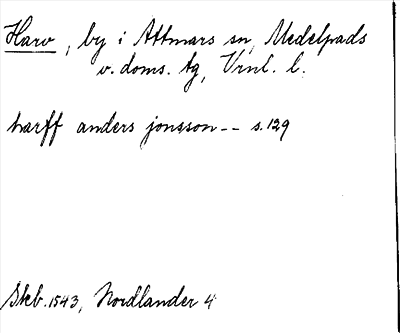 Harv, by i Attmars sn, Medelpads
v. doms. tg, Vrnl. l.
harff anders jonsson-- s.129
Skb.1543, Nordlander 4